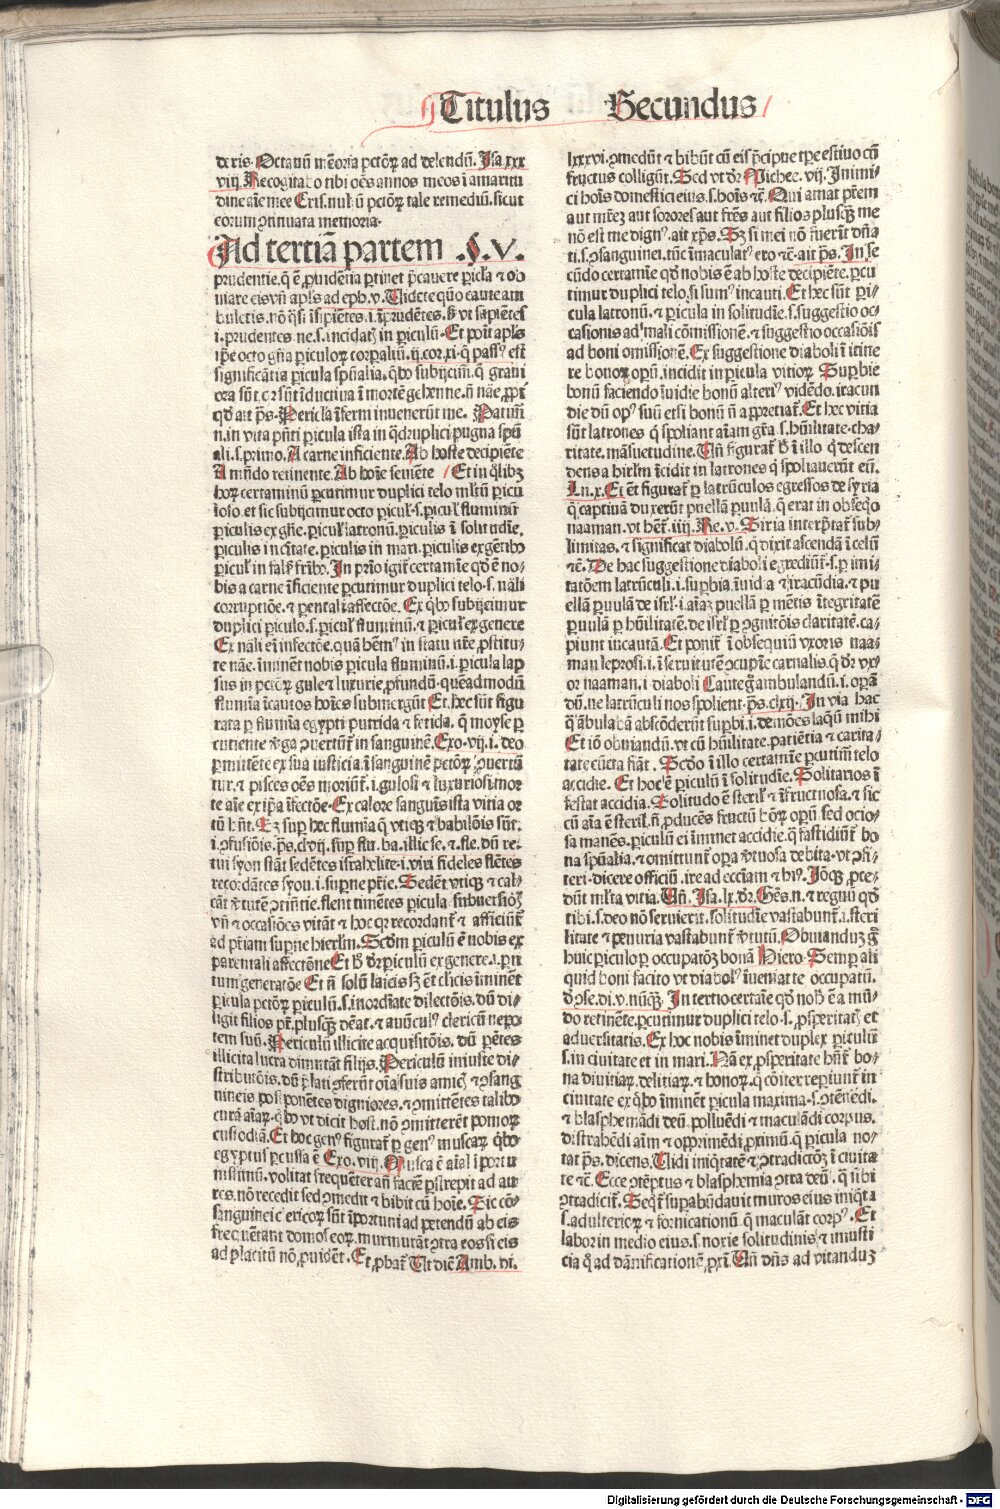 Titulus Secundus
deris. Octauū mēoria pctōꝝ ad delendū. Isa xxx
viij Recogitabo tibi oēs annos meos ī amaritu
dine aīe mee Erit.n. nullū pctōꝝ tale remediū. sicut
eorum ꝯtinuata memoria.
Ad tertiā partem .§.V.
prudentie. q̄ ē prudentia ꝑtinet p̄cauere picl̄a ⁊ ob
uiare eis vn̄ apl̄s ad eph. v. Uidete quō caute am
buletis. nō q̄si īsipiētes. i. īprudētes. ß vt sapiētes
i. prudentes ne .s. incidatis in piculū. Et ponit apl̄s
ip̄e octo gn̄a piculoꝝ corpaliū. ij. cor. xi. q̄ passus est
significātia picula spūalia. qb̄ subijcimur. q̄ graui
ora sūt
qd̓ ait ps̄. Pericla īferni inuenerūt me.
n. in vita pn̄ti picula ista in q̄druplici pugna spūa
ali. s. primo. A carne inficiente. Ab hoste decipiēte
A mūdo retinente. Ab hoīe seuiēte / Et in ql̄ibꝫ
hoꝝ certaminū percutimur duplici telo multū picu
loso. et sic subijcimur octo picul̓. s. picul̓ fluminū
piculis ex gn̄e. picul̓ latronū. piculis ī solitudīe.
piculis in ciuitate. piculis in mari. piculis ex gentibꝰ
picul̓ in falsis frībꝰ. In prīo igit̄ certamīe qd̓ ē no/
bis a carne īficiente percutimur duplici telo .s. nāli
corruptiōe. ⁊ parentali affectōe. Ex qb̄ꝰ subijcimur
duplici piculo. s. picul̓ fluminū. ⁊ picul̓ ex genere
Ex nāli eī infectōe. quā hēmꝰ in statu nr̄e ꝓstitu/
te nāe. īminēt nobis picula fluminū. i. picula lap
sus in pctōꝝ gule ⁊ luxurie ꝓfundū. quēadmodū
flumīa īcautos hoīes submergūt Et hec sūt figu
rata ꝑ flumīa egypti putrida ⁊ fetida. q̄ moyse ꝑ
cutiente v̓ga ꝯuertūt̄ in sanguinē. Exo. vij. i. deo
permittēte ex sua iusticia. ī sanguinē pctōꝝ ꝯuertū
tur. ⁊ pisces oēs moriunt̄. i. gulosi ⁊ luxuriosi mor
te aīe ex ip̄a īfectōe. Ex calore sanguis ista vitia or
tū hn̄t. Et sup hec flumīa q̄ vtiqꝫ ⁊ babilōis sūt.
i. ꝯfusiōis. ps̄. cxxxvij. sup flu. ba. illic se. ⁊ fle. dū re.
tui syon stāt sedētes israhelite. i. viri fideles flētes
recordātes syon. i. supne pr̄ie. Sedēt vtiqꝫ ⁊ cal/
cāt v̓tute ꝯtinētie. flent timētes picula subuersiōis
vn̄ ⁊ occasiōes vitāt ⁊ hoc qr recordant̄ ⁊ afficiūt̄
ad pr̄iam supne hierl̄m. Scd̄m piculū ē nobis ex
parentali affectōne Et ß dr̄ piculū ex genere. i. pn
tum generatōe Et nō solū laicis sꝫ et cl̄icis īminēt
picula pctōꝝ piculū. s. inordīate dilectōis. dū di/
ligit filios pr̄. plusqꝫ deū. ⁊ auūculꝰ clericū nepo
tem suū. Periculū illicite acquisitōis. dū pētes
illicita lucra dimittāt filijs. Periculū iniuste di/
stributōis. dū p̄lati ꝯferūt oīa suis amicis ⁊ ꝯsang
uineis postponētes digniores. ⁊ ꝯmittētes talibꝰ
curā aīaꝝ. qb̄ꝰ vt dicit host. nō ꝯmitterēt pomoꝝ
custodiā. Et hoc genꝰ figurat̄ ꝑ genꝰ muscaꝝ qb̄ꝰ
egyptus pcussa ē Exo. viij. Musca ē aīal īportu
nissimū. volitat frequēter an̄ faciē pstrepit ad au
res. nō recedit sed ꝯmedit ⁊ bibit cū hoīe. Sic cō/
sanguinei clericoꝝ sūt īportuni ad petendū ab eis
frequētant domos eoꝝ. murmurāt ꝯtra eos si eis
ad placitū nō ꝓuidēt. Et ꝓbat̄ Ut diē Amb. di.
lxxxvi. ꝯmedūt ⁊ bibūt cū eis p̄cipue tp̄e estiuo cū
fructus colligūt. Sed vt dr̄ Michee. vij. Inimi/
ci hoīs domestici eius. s. hoīs ⁊c̄. Qui amat pr̄em
aut mr̄ez aut sorores aut frēs aut filios plusqꝫ me
nō est me dignꝰ. ait xp̄s. Sꝫ si mei nō fuerūt dn̄a
ti. s. ꝯsanguinei. tūc īmaculatꝰ ero ⁊c̄. ait ps̄. In se
cūdo certamīe qd̓ nobis ē ab hoste decipiēte. pcu
timur duplici telo. si sumꝰ incauti. Et hec sūt pi/
cula latronū. ⁊ picula in solitudīe. s. suggestio oc/
casionis ad mali cōmissionē. ⁊ suggestio occasiōis
ad boni omissionē. Ex suggestione diaboli ī itine
re bonoꝝ opū. incidit in picula vitioꝝ Supbie
bonū faciendo īuidie bonū alteriꝰ vidēdo. iracun
die dū opꝰ suū etsi bonū nō appretiat̄. Et hec vitia
sūt latrones q̄ spoliant aīam gr̄a. s. hūilitate. cha/
ritate. māsuetudine. Un̄ figurat̄ ß ī illo q̄ descen
dens a hirl̄m īcidit in latrones q̄ spoliauerūt eū.
Ln. x. Et ēt figurat̄ ꝑ latrūculos egressos de syria
q̄ captiuā duxerūt puellā puulā. q̄ erat in obseq̄o
naaman. vt het̄. iiij. Re. v. Siria interp̄tat̄ sub/
limitas. ⁊ significat diabolū. q̄ dixit ascendā ī celū
⁊c̄. De hac suggestione diaboli egrediūt̄. s. ꝑ imi
tatōem latrūculi. i. supbia īuidia ⁊ iracūdia. ⁊ pu
ellā puulā de isrl̄. i. aīaꝫ puellā ꝑ mētis ītegritatē
puulā ꝑ hūilitatē. de isrl̄ ꝑ ꝯgnitōis claritatē. ca/
piunt incautā. Et ponit̄ ī obsequiū vxoris naa/
man leprosi. i. ī seruitutē ꝯcupīe carnalis. q̄ dr̄ vx/
or naaman. i. diaboli Caute g̊ ambulandū. i. oꝑā
dū. ne latrūculi nos spolient. ps̄. clxij. In via hac
q̄ ābulabā abscōderūt supbi. i. demōes laqū mihi
Et iō obuiandū. vt cū hūilitate. patiētia ⁊ carita/
tate cūcta fiāt. Scd̓o ī illo certamīe pcutim̄ telo
accidie. Et hoc ē piculū ī solitudīe. Solitarios ī
festat accidia. Solitudo ē sterilꝰ ⁊ īfructuosa. ⁊ sic
cū aīa ē sterilꝰ. nō ꝓducēs fructū bōꝝ opū sed ocio/
sa manēs. piculū ei īminet accidie. q̄ fastidiūt̄ bo
na spūalia. ⁊ omittunt̄ oꝑa v̓tuosa debita. vt ꝯfi/
teri. dicere officiū. ire ad eccl̄iam ⁊ hiꝰ. Iōqꝫ pte/
dūt ml̄ta vitia. Un̄. Isa. lx. dr̄. Gēs. n. ⁊ regnū qd̓
tibi. s. deo nō seruierit. solitudīe vastabunt̄. i. steri
litate ⁊ penuria vastabunt̄ v̓tutū. Obuianduꝫ g̊
huic piculo ꝑ occupatōꝫ bonā Hiero. Semp ali
quid boni facito vt diabolꝰ īueniat te occupatū.
de ꝯse. di. v. nūqꝫ. In tertio certaīe qd̓ nobis ē a mū/
do retinēte. pcutimur duplici telo. s. ꝓsperitatis et
aduersitatis. Ex hoc nobis īminet duplex piculū
s. in ciuitate et in mari. Nā ex ꝓsperitate hn̄t̄ bo/
na diuitiaꝝ. delitiaꝝ. ⁊ honoꝝ. q̄ cōiter repiunt̄ in
ciuitate ex qb̄ꝰ īminēt picula maxima. s. ꝯtēnēdi.
⁊ blasphemādi deū. polluēdi ⁊ maculādi corpus.
distrahēdi aīm ⁊ opprimēdi ꝓximū. q̄ picula no/
tat ps̄. dicens. Uidi iniq̄tatē ⁊ ꝯtradictōꝫ ī ciuita
te ⁊c̄. Ecce ꝯtēptus ⁊ blasphemia ꝯtra deū. q̄ sibi
ꝯtradicit̄. Seqt̄ supabūdauit muros eius iniq̄ta
s. adulterioꝝ ⁊ fornicationū. q̄ maculāt corpꝰ. Et
labor in medio eius. s. noxie solitudinis ⁊ iniusti
cia q̄ ad dānificationē. ꝓxī. Un̄ dn̄s ad vitanduꝫ
Digitalisierung gefördert durch die Deutsche Forschungsgemeinschaft - DFG